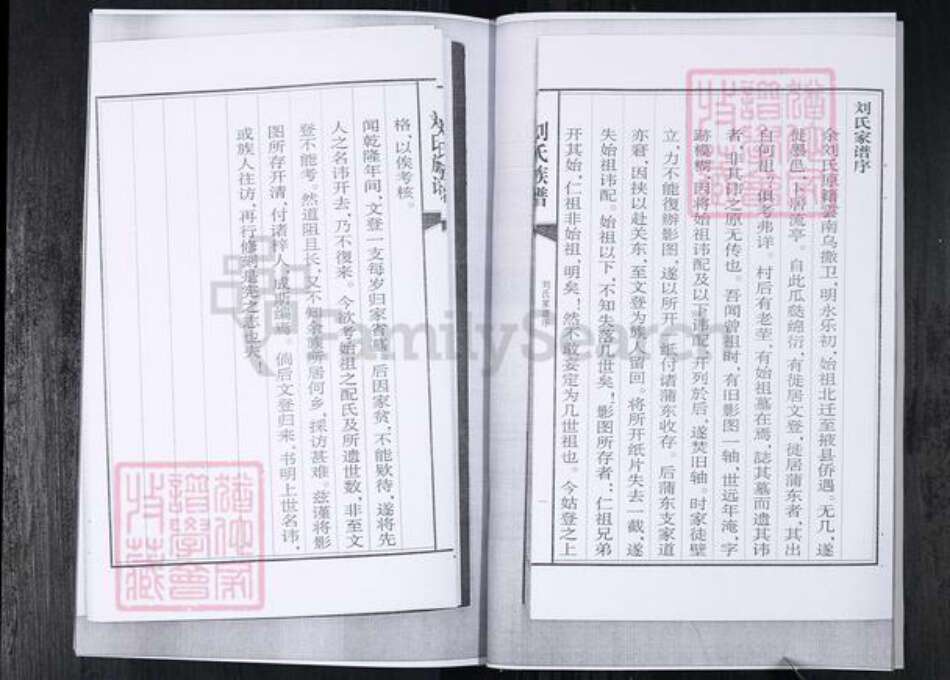 刘氏家谱序
余刘氏原籍雲南乌撒卫，明永乐初，始祖北迁至掖县侨遇。无几，遂
徙墨邑，卜居流亭。自此瓜瓞绵衍，有徙居文登，徙居蒲东者，其出
自何祖，俱考弗详。村后有老茔，有始祖墓在焉，誌其墓而遗其讳
者，非其讳之原无传也。吾闻曾祖时，有旧影图一轴，世远年淹，字
跡模糊，因将始祖讳配及以下讳配，开列於后，遂焚旧轴。时家徒壁
立，力不能復辦影图，遂以所开一纸付诸蒲东收存。后蒲东支家道
亦窘，因挟以赴关东，至文登为族人留回。将所开纸片失去一截，遂
失始祖讳配。始祖以下，不知失落几世矣！影图所存者，仁祖兄弟
开其始，仁祖非始祖，明矣！然不敢妄定为几世祖也。今姑登之上
刘氏族谱
刘氏家谱序
一
格，以俟考核。
闻乾隆年间，文登一支每岁归家省墓，后因家贫，不能欵待，遂将先
人之名讳开去，乃不復来。今欲考始祖之配氏及所遗世数，非至文
登不能考。然道阻且长，又不知余族所居何乡，採访甚难。兹谨将影
图所存开清，付诸梓人，成斯编焉。倘后文登归来，书明上世名讳，
或族人往访，再行修到是先之志也夫！
譜學會
收藏
FamilySearch